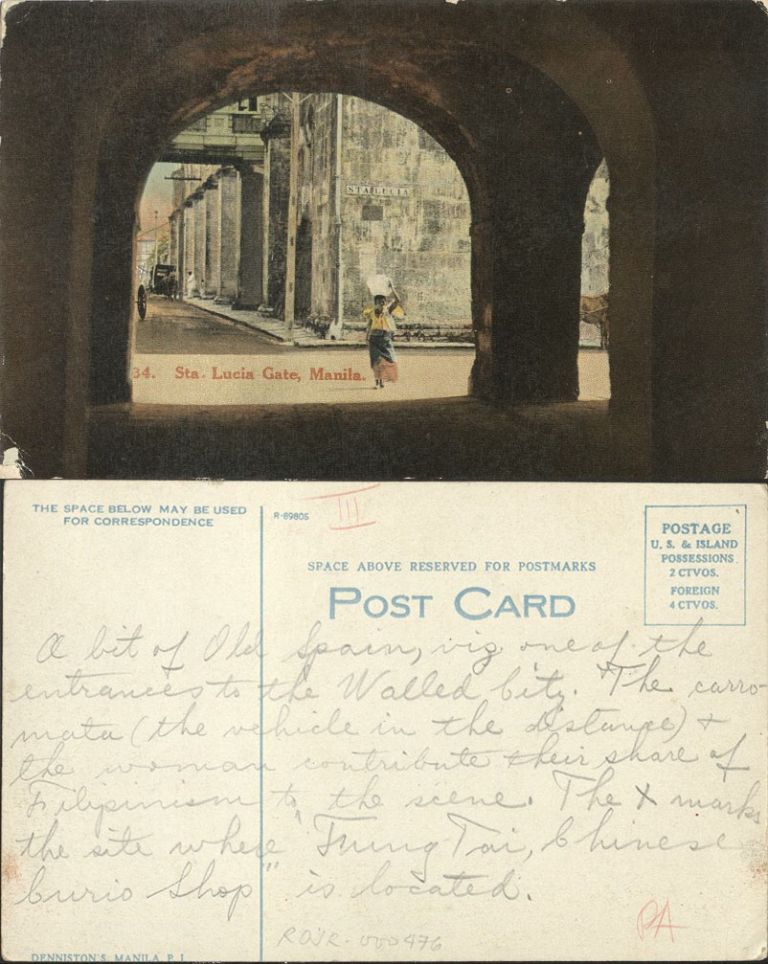 STA LUCIA
34. Sta. Lucia Gate, Manila.
THE SPACE BELOW MAY BE USED
FOR CORRESPONDENCE
R-69805
III
SPACE ABOVE RESERVED FOR POSTMARKS
POST CARD
POSTAGE
U. S. & ISLAND
POSSESSIONS
2 CTVOS.
FOREIGN
4 CTVOS.
A bit of Old Spain, viz one of the
entrances to the Walled City. The carro-
mata (the vehicle in the distance) &
the woman contribute their share of
Filipinism to the scene. The X marks
the site where "Fung Tai, Chinese
Curio Shop" is located.
ROJR-000476
PA
DENNISTON'S MANILA P. I.